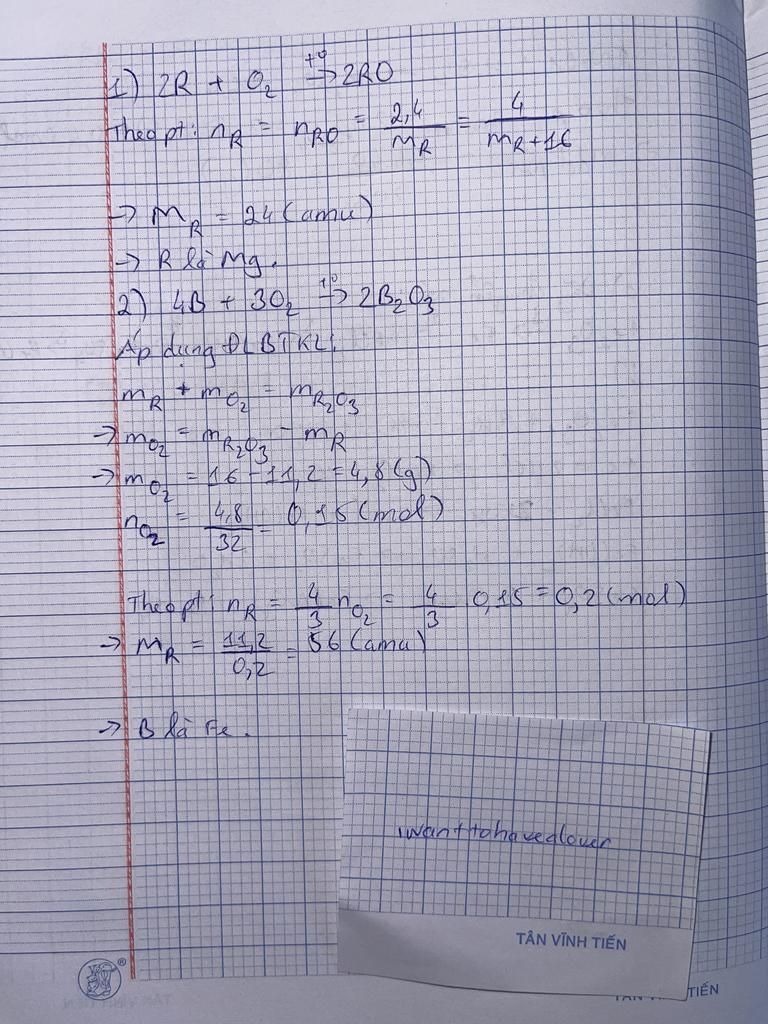 1) 2R + O₂ →(t⁰) 2RO
Theo pt: nR = nRO = 2,4/MR = 4/MR+16
→ MR = 24 (amu)
→ R là Mg.
2) 4B + 3O₂ →(t⁰) 2B₂O₃
Áp dụng ĐLBTKL:
mR + mO₂ = mR₂O₃
→ mO₂ = mR₂O₃ - mR
→ mO₂ = 16 - 11,2 = 4,8 (g)
nO₂ = 4,8/32 = 0,15 (mol)
Theo pt: nR = 4/3 nO₂ = 4/3 0,15 = 0,2 (mol)
→ MR = 11,2/0,2 = 56 (amu)
→ B là Fe.
iwanttohavealover
TÂN VĨNH TIẾN
TIẾN